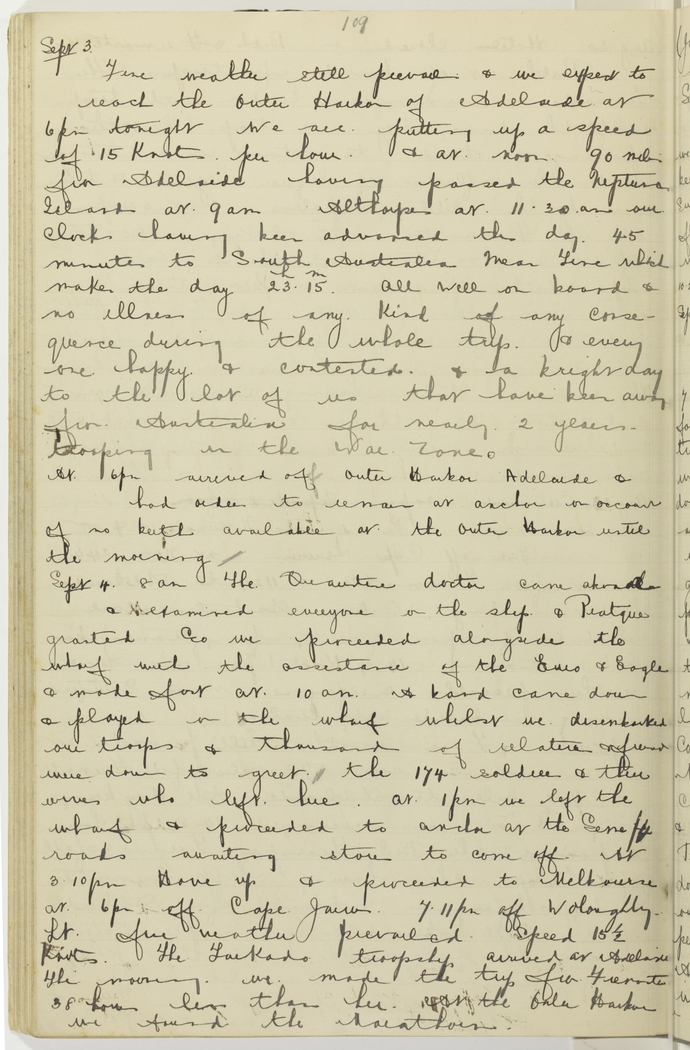 109
Sept 3
Fine weather still prevail. & we expect to
reach the Outer Harbor of Adelaide at
6pm tonight We are. putting up a speed
of 15 Knots. per hour. & at. noon. 90 miles
from Adelaide having passed the Neptune
Island at. 9am Althorpes at. 11.30. am our
Clocks having been advanced this day. 45
minutes to South Australia Mean Time which
makes the day 23h. 15m. All well on board &
no illness of any. Kind of any conse-
quence during the whole trip. & every
one happy & contested. & a bright day
to the lot of us that have been away
from Australia for nearly. 2 years-
trooping in the War Zone.
At. 6pm arrived off Outer Harbor Adelaide &
had orders to remain at anchor on account
of no berth available at the Outer Harbor until
the morning
Sept 4. 8am The Quarantine doctor came aboard
& examined everyone on the ship & Pratque
granted So we proceeded alongside the
wharf with the assistance of the Euro & Eagle
& made fast at. 10am. A band came down
& played on the wharf whilst we. disembarked
our troops & thousand of relatives & friends
were down to greet. the 174 soldiers & their
wives who left here. at. 1pm we left the
wharf & proceeded to anchor at the Semaphore
roads awaiting stores to come off At
3.10pm Hove up & proceeded to Melbourne
at. 6pm off Cape Jarvis. 7.11pm off Willoughby.
Lt. fine weather prevailed. Speed 15½
Knots. The troopship arrived at Adelaide
this morning. we. made the trip from Fremantle
38 hours less than her. At the Outer Harbor
we found the Marathon.